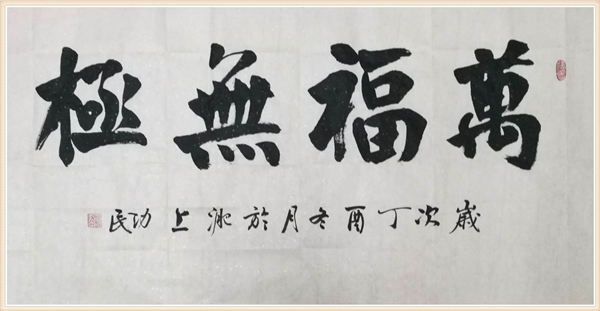 萬福無極
歲次丁酉冬月於沘上功民